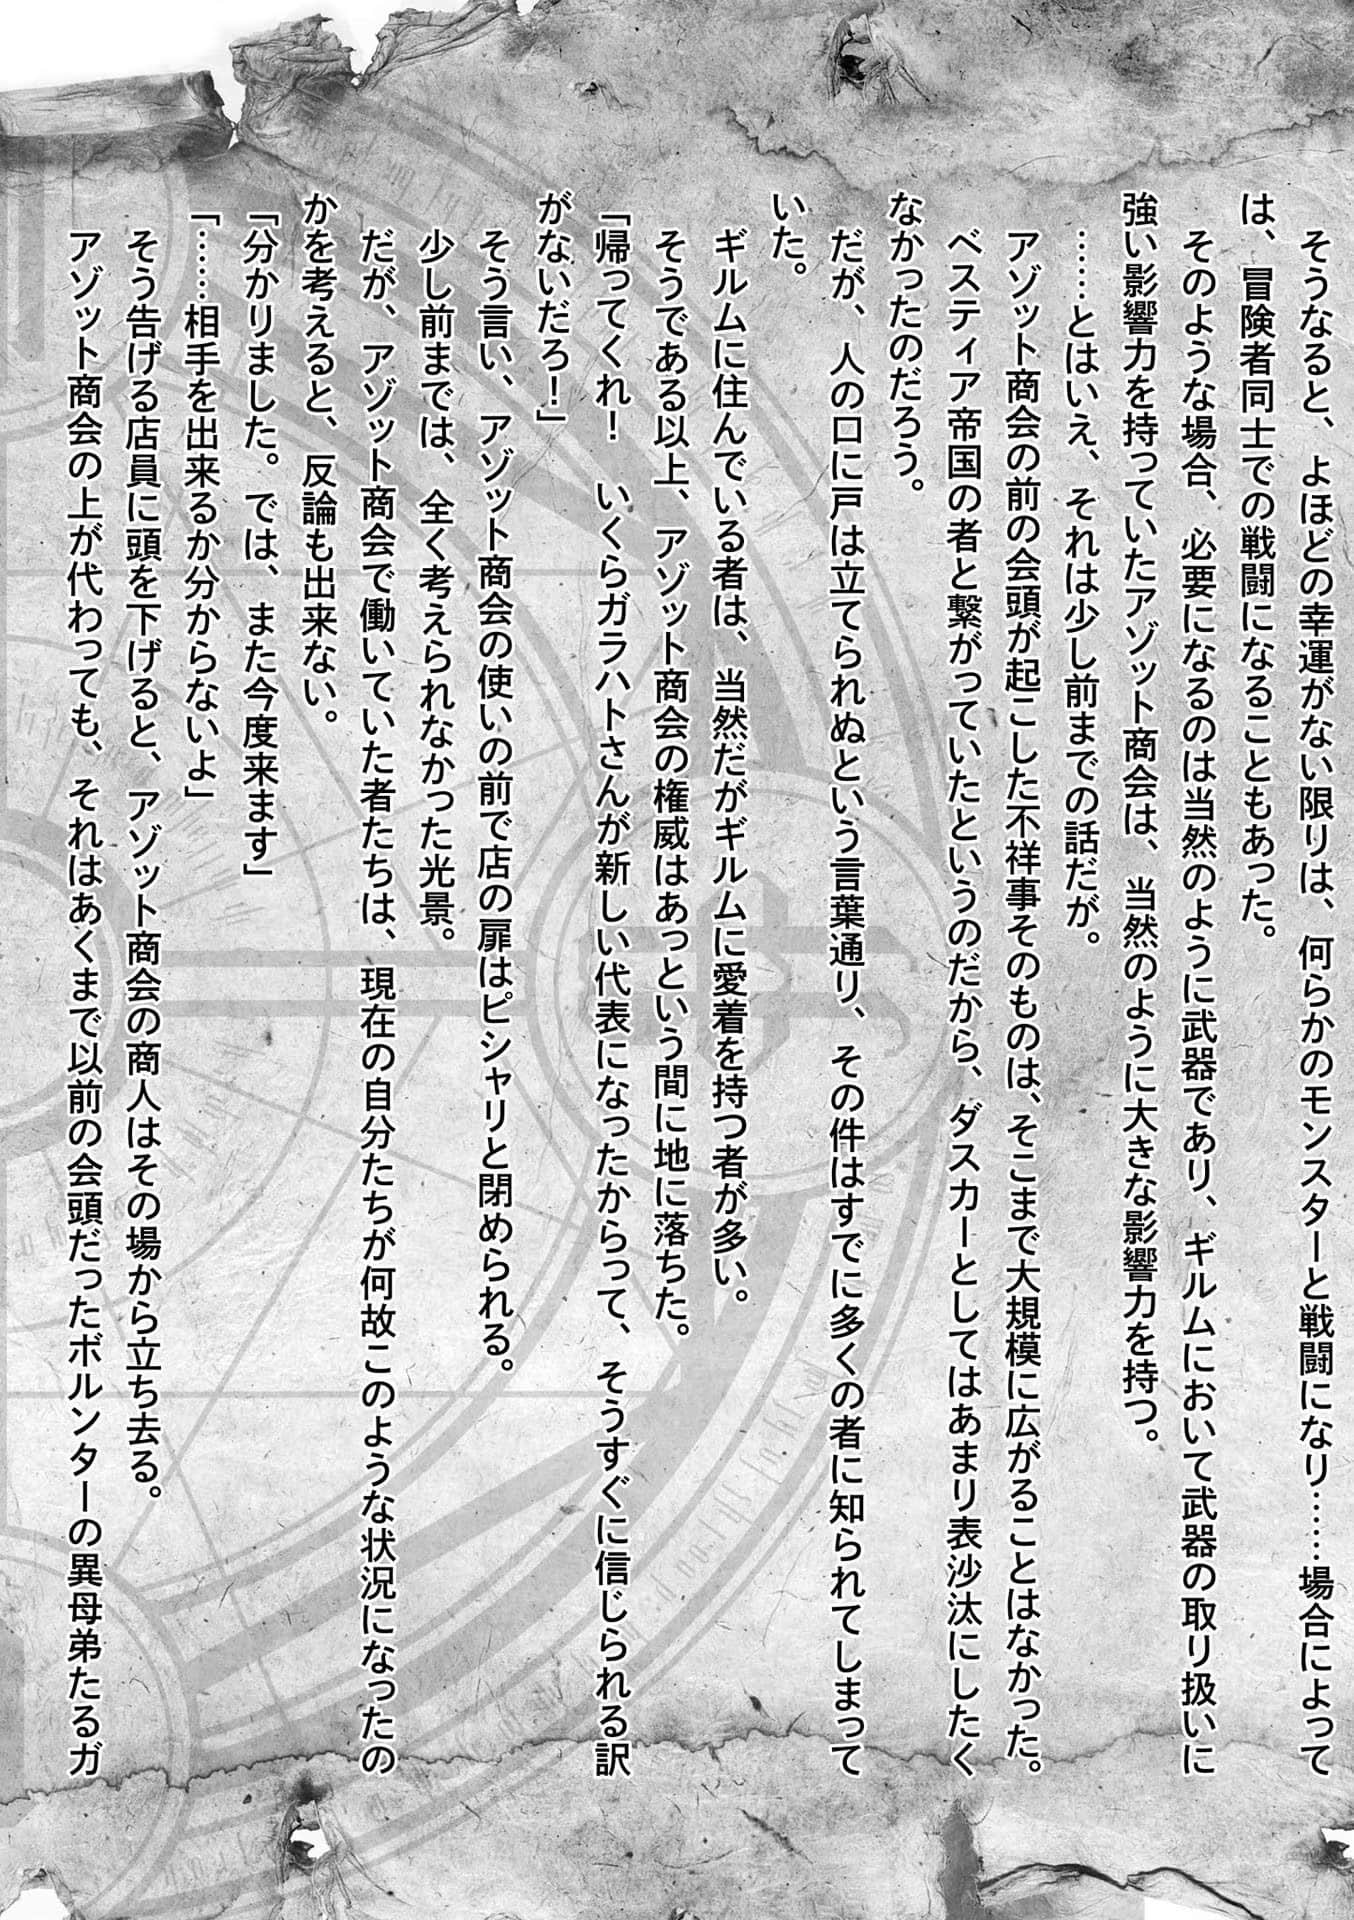 そうなると、よほどの幸運がない限りは、何らかのモンスターと戦闘になり……場合によって
は、冒険者同士での戦闘になることもあった。
そのような場合、必要になるのは当然のように武器であり、ギルムにおいて武器の取り扱いに
強い影響力を持っていたアゾット商会は、当然のように大きな影響力を持つ。
……とはいえ、それは少し前までの話だが。
アゾット商会の前の会頭が起こした不祥事そのものは、そこまで大規模に広がることはなかった。
ベスティア帝国の者と繋がっていたというのだから、ダスカーとしてはあまり表沙汰にしたく
なかったのだろう。
だが、人の口に戸は立てられぬという言葉通り、その件はすでに多くの者に知られてしまって
いた。
ギルムに住んでいる者は、当然だがギルムに愛着を持つ者が多い。
そうである以上、アゾット商会の権威はあっという間に地に落ちた。
「帰ってくれ！　いくらガラハトさんが新しい代表になったからって、そうすぐに信じられる訳
がないだろ！」
そう言い、アゾット商会の使いの前で店の扉はピシャリと閉められる。
少し前までは、全く考えられなかった光景。
だが、アゾット商会で働いていた者たちは、現在の自分たちが何故このような状況になったの
かを考えると、反論も出来ない。
「分かりました。では、また今度来ます」
「……相手を出来るか分からないよ」
そう告げる店員に頭を下げると、アゾット商会の商人はその場から立ち去る。
アゾット商会の上が代わっても、それはあくまで以前の会頭だったボルンターの異母弟たるガ